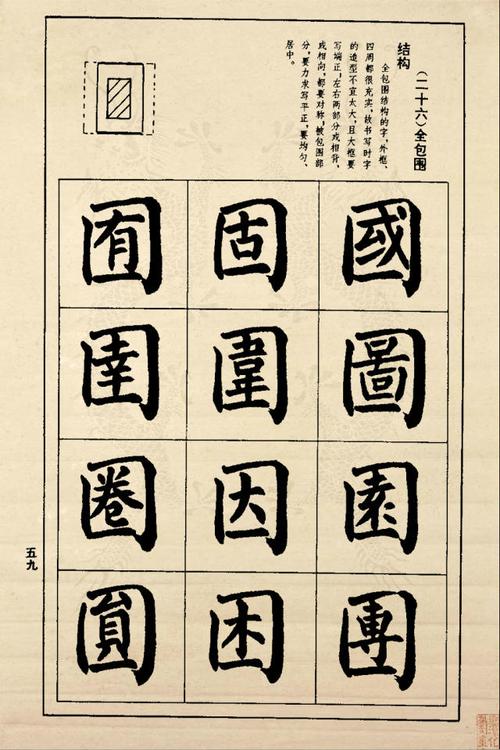 （二十六）全包围
结构
全包围结构的字，外框、
四周都很充实，故书写时字
的造型不宜太大，且大框要
写端正，左右两部分或相背，
或相向，都要对称，被包围部
分，要力求写平正，要均匀、
居中。
國
圖
園
團
固
圍
因
困
囿
圉
圈
圓
五九